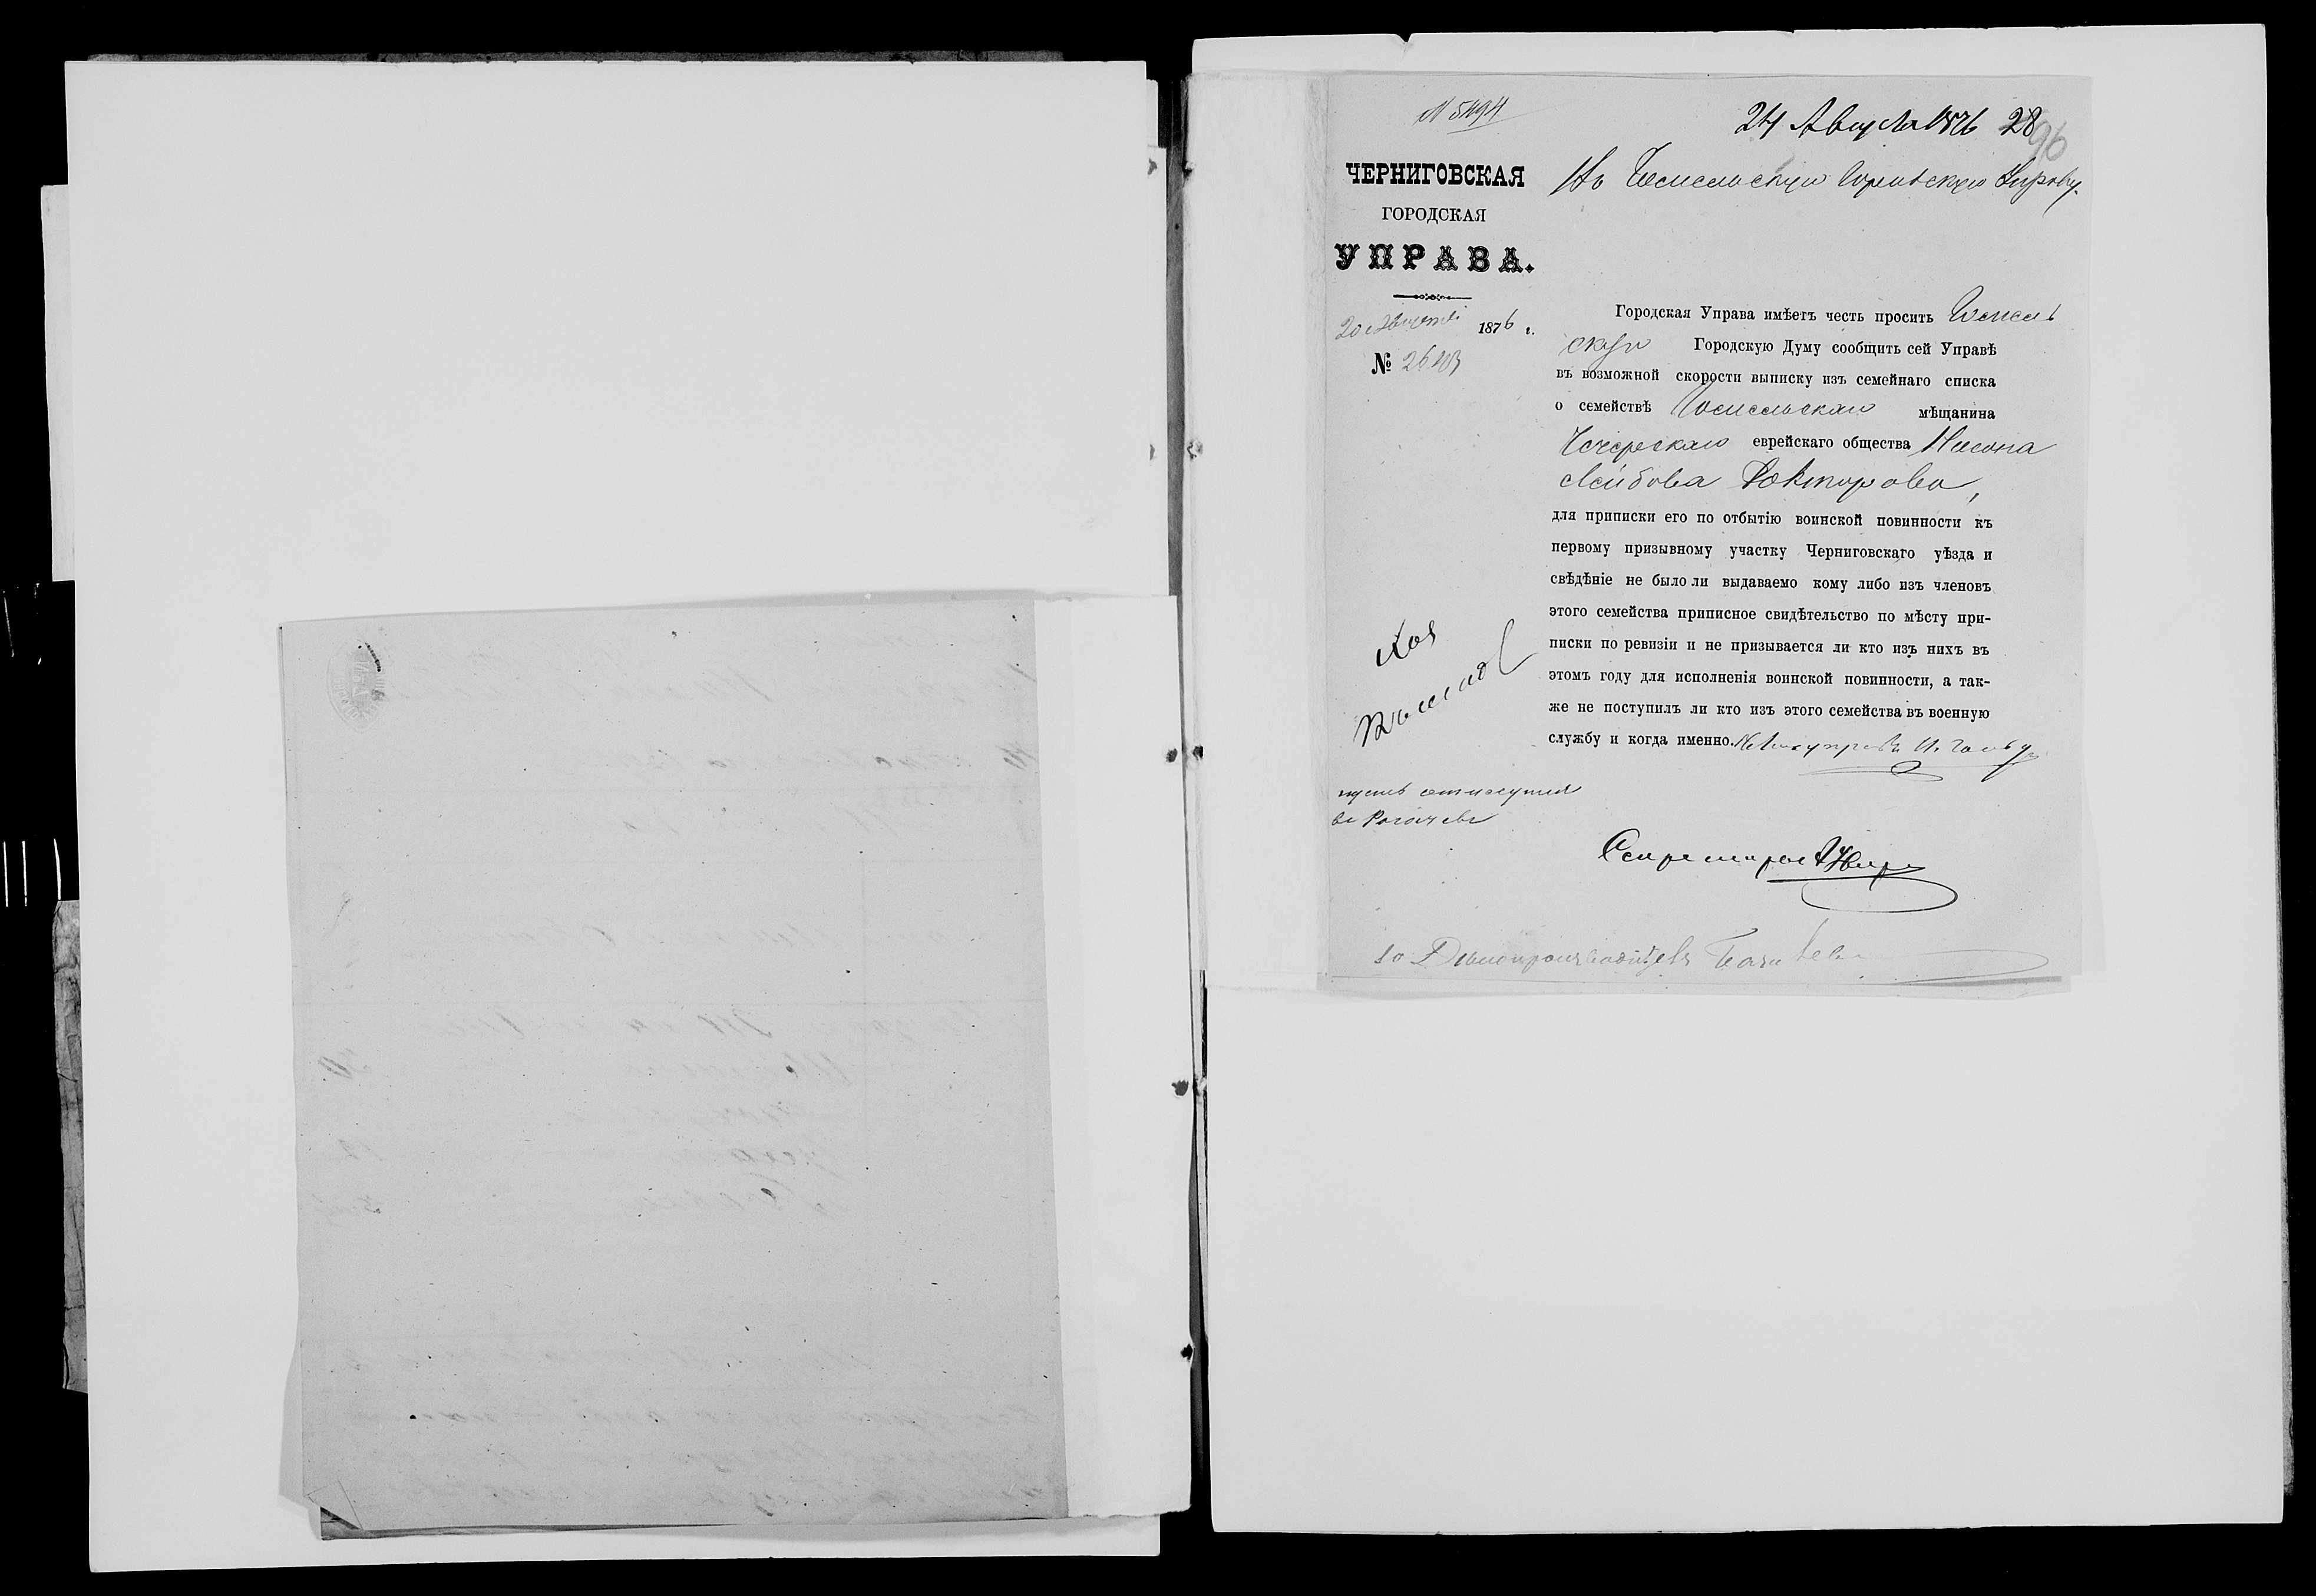 № 5494
24 Августа 1876 28
96
ЧЕРНИГОВСКАЯ
ГОРОДСКАЯ
УПРАВА.
20 Августа 1876 г.
№ 2643
Въ Гомельскую Городскую Управу.
Городская Управа имѣетъ честь просить Гомель
скую Городскую Думу сообщить сей Управѣ
въ возможной скорости выписку изъ семейнаго списка
о семействѣ Гомельскаго мѣщанина
Чечерскаго еврейскаго общества Насона
Лейбова Докторова,
для приписки его по отбытію воинской повинности къ
первому призывному участку Черниговскаго уѣзда и
свѣдѣніе не было ли выдаваемо кому либо изъ членовъ
этого семейства приписное свидѣтельство по мѣсту при-
писки по ревизіи и не призывается ли кто изъ нихъ въ
этомъ году для исполненія воинской повинности, а так-
же не поступилъ ли кто изъ этого семейства въ военную
службу и когда именно.
въ Рогачевъ
Секретарь
Дѣлопроизводитель